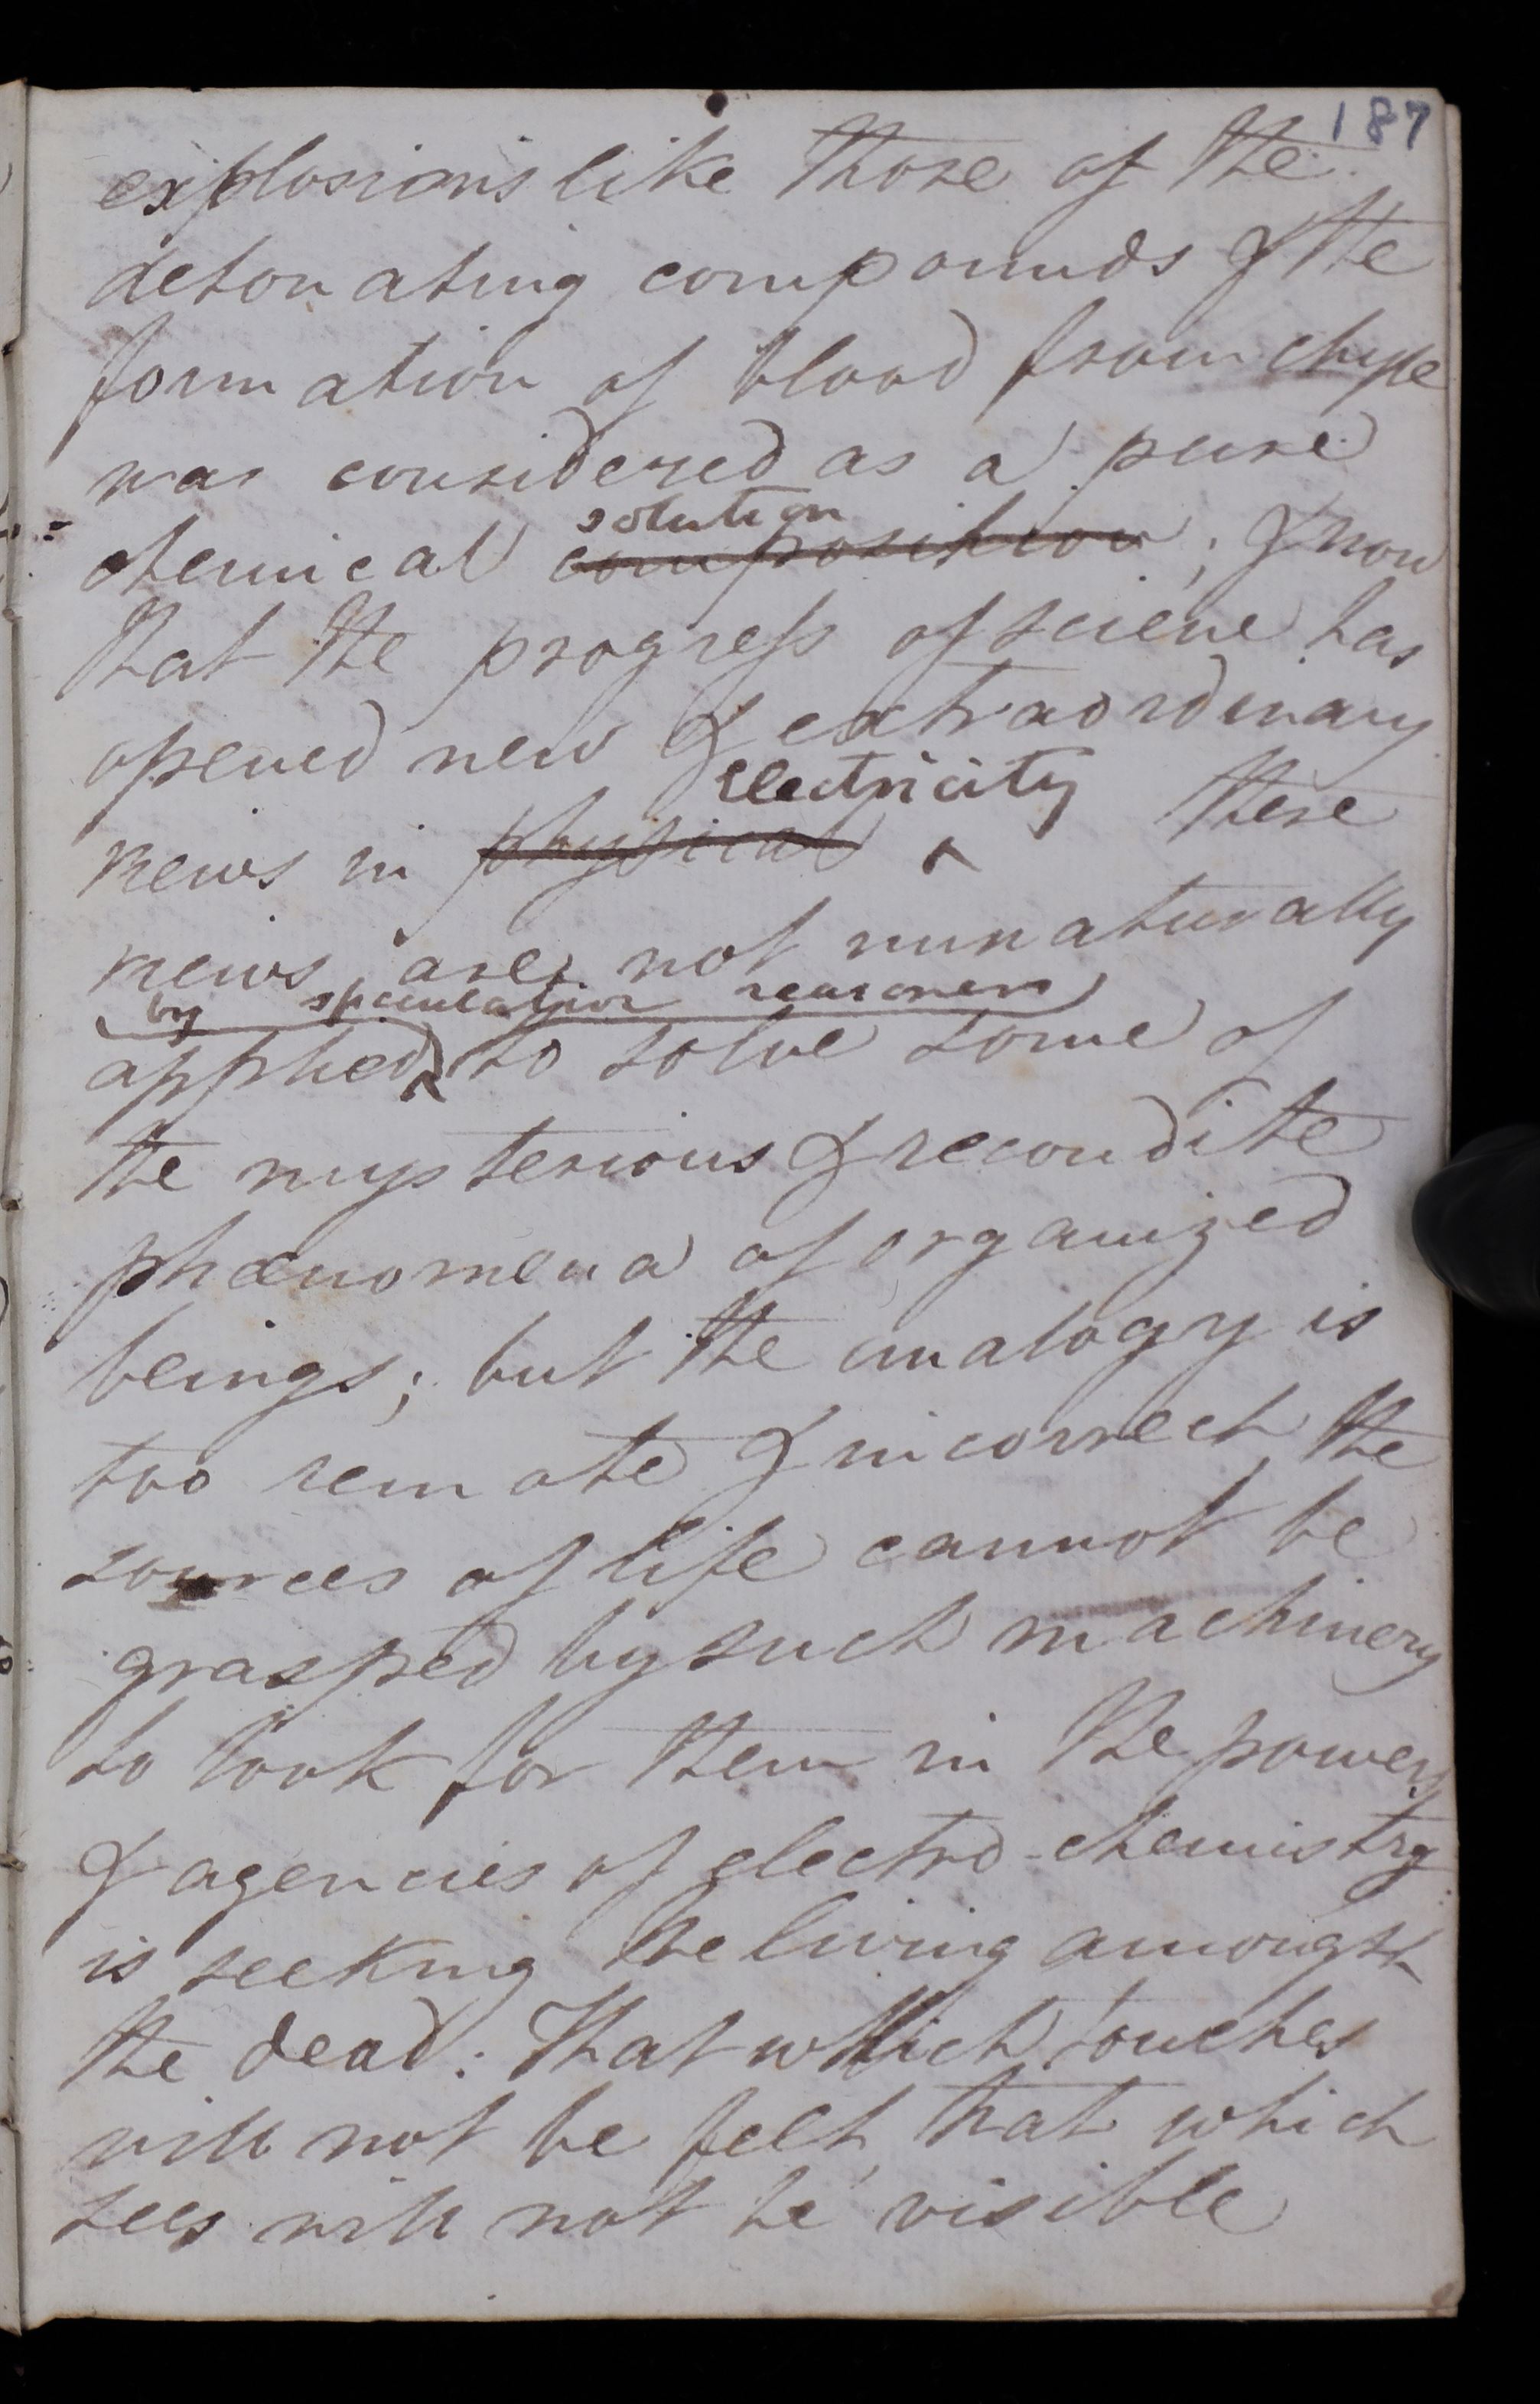 187
explosions like those of the
detonating compounds & the
formation of blood from chyle
was considered as a pure
solution
chemical composition ; & now
that the progress of science has
opened new & extraordinary
electricity
views in physical ^ these
views are not unnaturally
by speculative reasoners
applied ^ to solve some of
the mysterious & recondite
phænomena of organized
beings; but the analogy is
too remote & incorrect, the
sources of life cannot be
grasped by such machinery
to look for them in the powers
& agencies of electro-chemistry
is seeking the living amongst
the dead: That which touches
will not be felt, that which
sees will not be visible